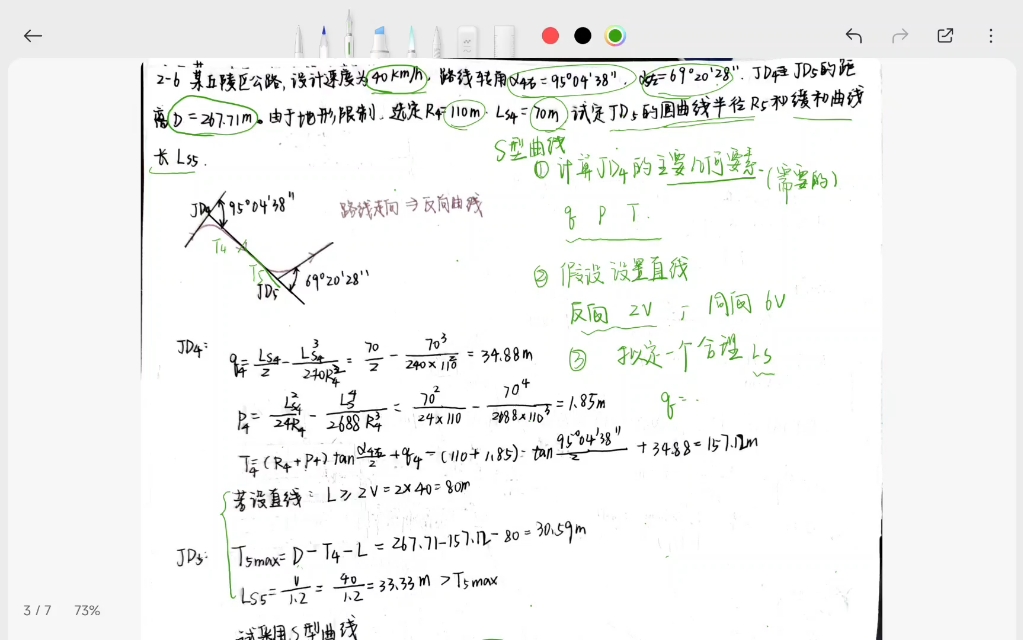 2-6 某丘陵区公路，设计速度为40km/h，路线转角α4左=95°04′38″，α5右=69°20′28″，JD4至JD5的距
离D=267.71m。由于地形限制，选定R4=110m，Ls4=70m，试定JD5的圆曲线半径R5和缓和曲线
长Ls5.
S型曲线
① 计算JD4的主要几何要素.（需要的）
q P T.
② 假设设置直线
反向 2V ； 同向 6V
③ 拟定一个合理Ls
q=..
JD4 95°04′38″
路线走向⇒反向曲线
T4
T5
JD5 69°20′28″
JD4:
q4=Ls4/2-Ls4³/240R4²=70/2-70³/(240×110²)=34.88m
P4=Ls4²/24R4-Ls4⁴/2688R4³=70²/(24×110)-70⁴/(2688×110³)=1.85m
T4=(R4+P4)tan α4/2+q4=(110+1.85)·tan 95°04′38″/2+34.88=157.12m
若设直线：L≥2V=2×40=80m
JD5:
T5max=D-T4-L=267.71-157.12-80=30.59m
LS5=V/1.2=40/1.2=33.33m>T5max
试采用S型曲线
3 / 7 73%